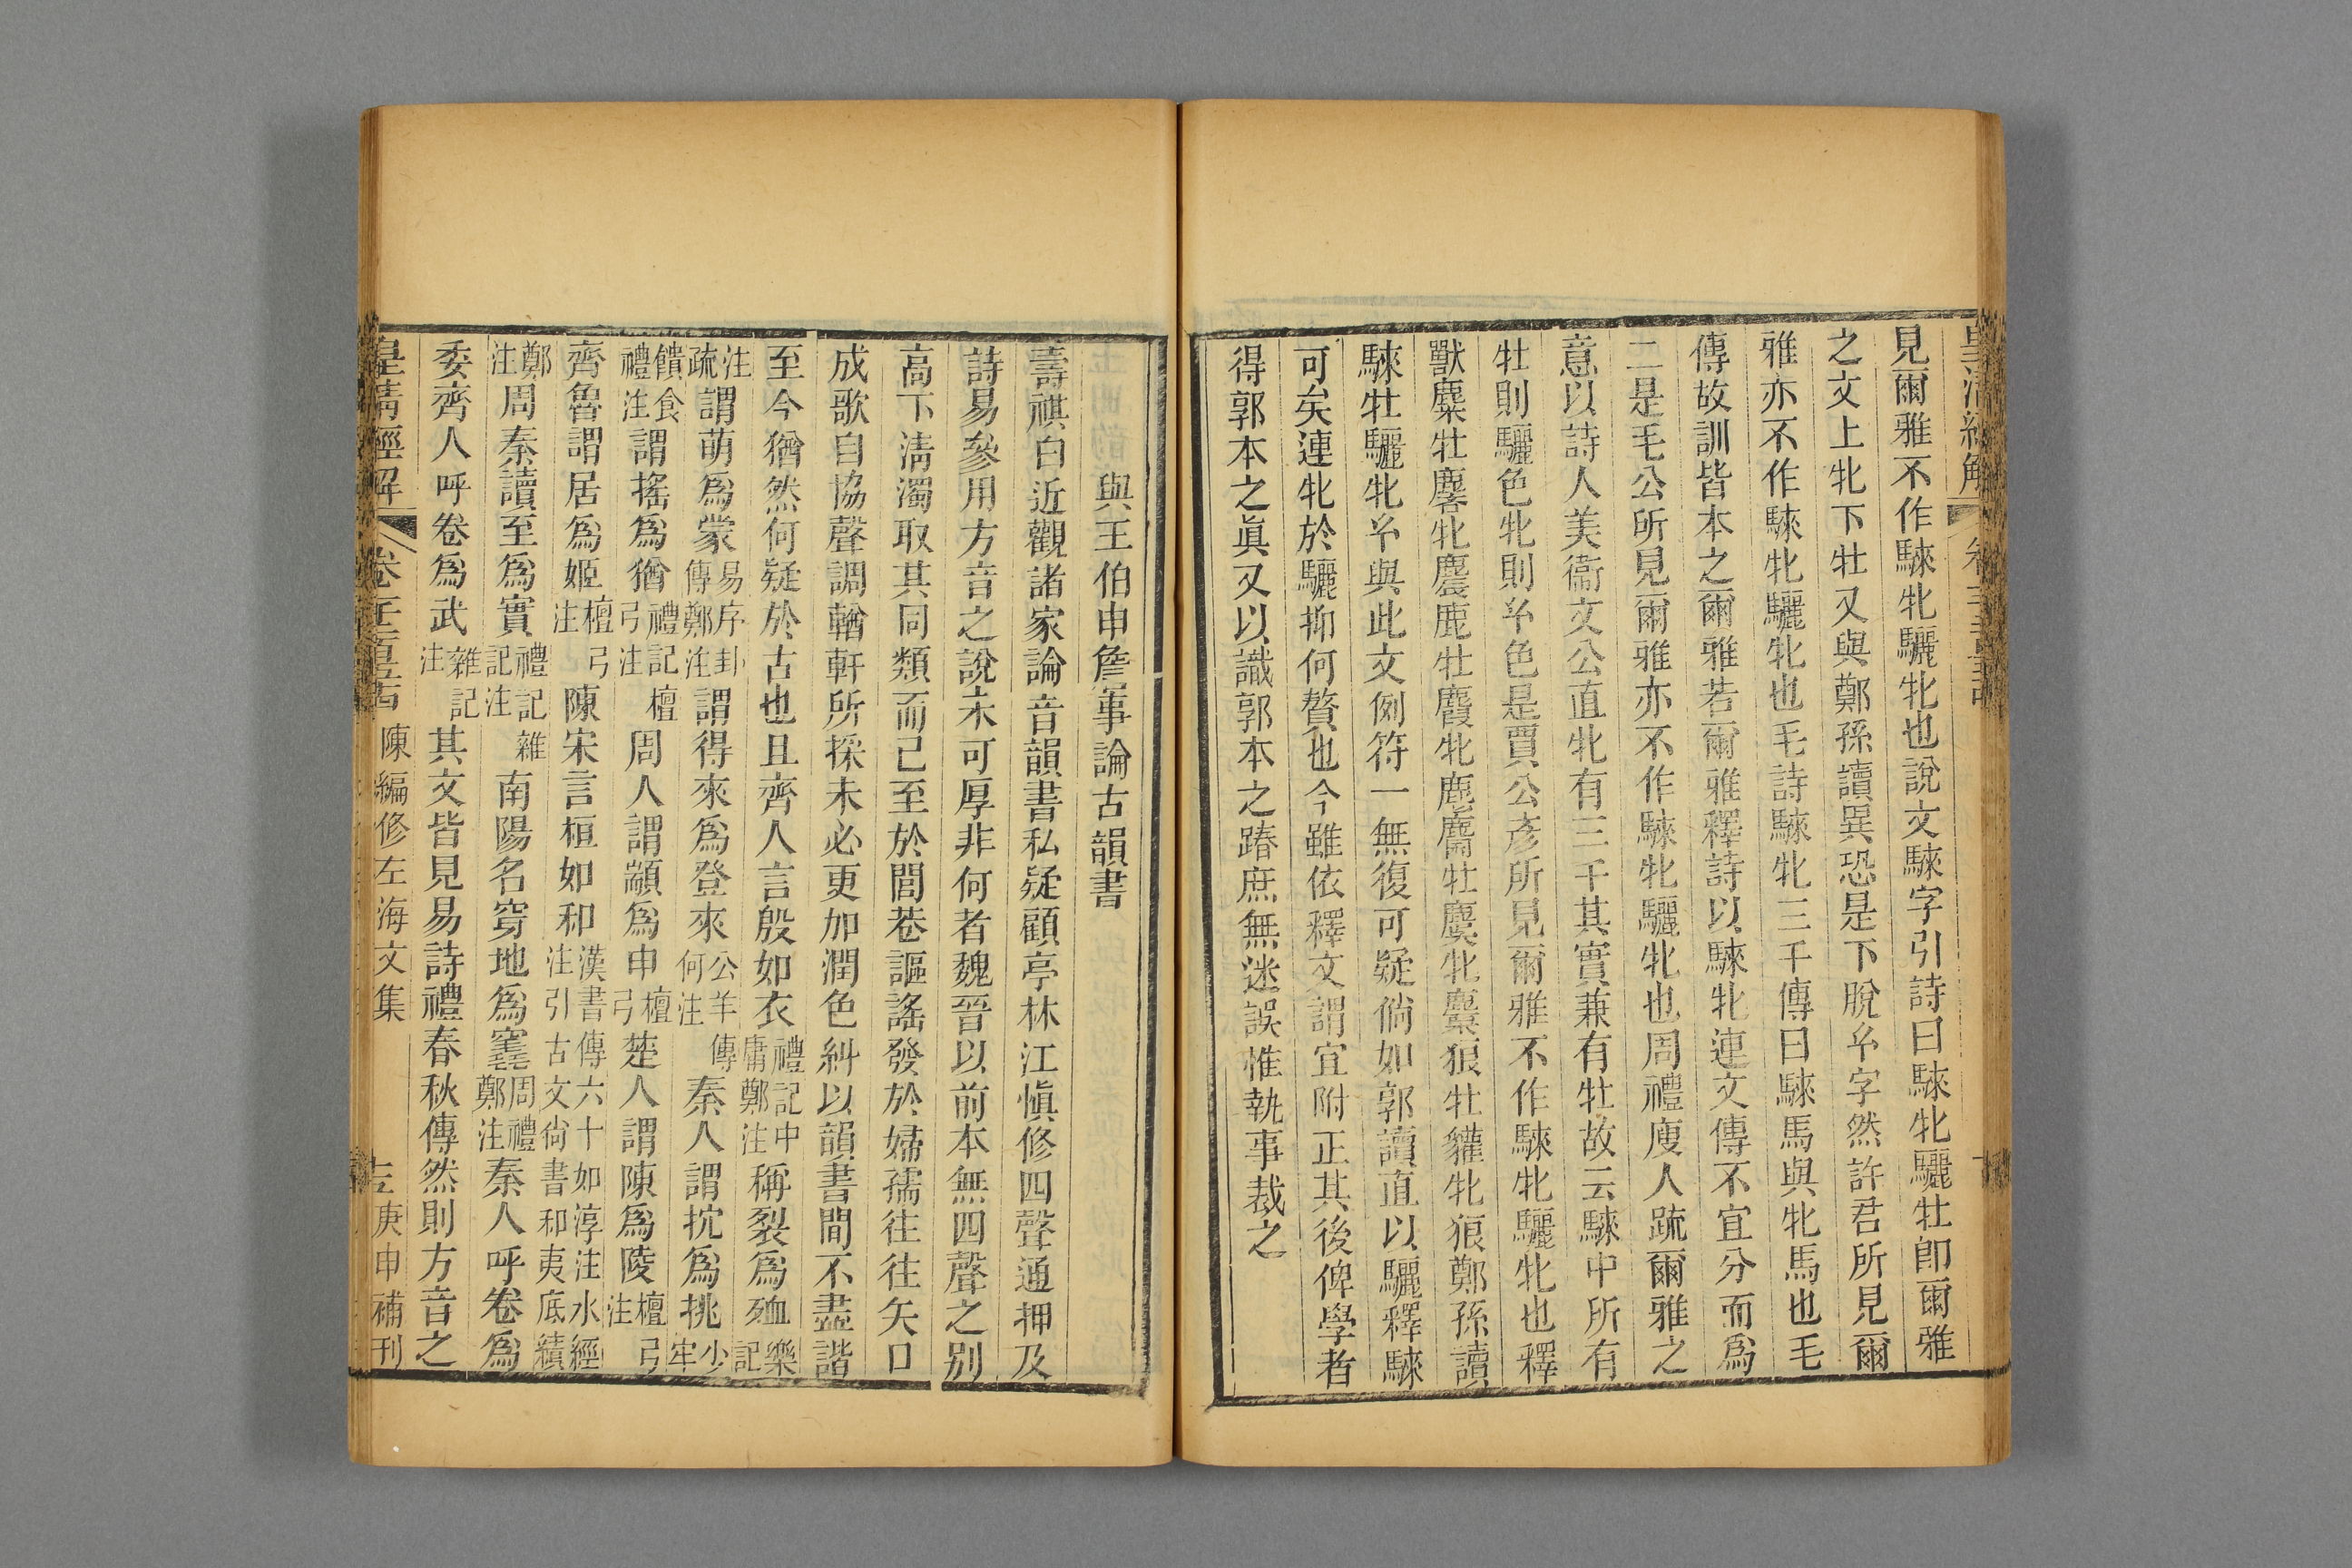 皇清經解
見爾雅不作騋牝驪牝也說文騋字引詩曰騋牝驪牡卽爾雅
之文上牝下牡又與鄭孫讀異恐是下脫𢆯字然許君所見爾
雅亦不作騋牝驪牝也毛詩騋牝三千傳曰騋馬與牝馬也毛
傳故訓皆本之爾雅若爾雅釋詩以騋牝連文傳不宜分而爲
二是毛公所見爾雅亦不作騋牝驪牝也周禮廋人疏爾雅之
意以詩人美衞文公直牝有三千其實兼有牡故云騋中所有
牡則驪色牝則𢆯色是賈公彥所見爾雅不作騋牝驪牝也釋
獸麋牡麔牝麎鹿牡麚牝麀麕牡麌牝麜狼牡貛牝狼鄭孫讀
騋牡驪牝𢆯與此文例符一無復可疑倘如郭讀直以驪釋騋
可矣連牝於驪抑何贅也今雖依釋文謂宜附正其後俾學者
得郭本之眞又以識郭本之踳庶無迷誤惟執事裁之
與王伯申詹事論古韻書
壽祺白近觀諸家論音韻書私疑顧亭林江愼修四聲通押及
詩易參用方音之說未可厚非何者魏晉以前本無四聲之別
高下淸濁取其同類而已至於閭巷謳謠發於婦孺往往矢口
成歌自協聲調輶軒所採未必更加潤色糾以韻書間不盡諧
至今猶然何疑於古也且齊人言殷如衣禮記中庸鄭注稱裂爲殈樂記
注疏謂萌爲蒙易序卦傳鄭注謂得來爲登來公羊傳何注秦人謂抭爲挑少牢
饋食禮注謂搖爲猶禮記檀弓注周人謂顓爲申檀弓楚人謂陳爲陵檀弓注
齊魯謂居爲姬檀弓注陳宋言桓如和漢書傳六十如淳注水經注引古文尙書和夷底績
鄭注周秦讀至爲實禮記雜記注南陽名穿地爲竁周禮鄭注秦人呼卷爲
委齊人呼卷爲武雜記注其文皆見易詩禮春秋傳然則方音之
皇清經解 陳編修左海文集 庚申補刊